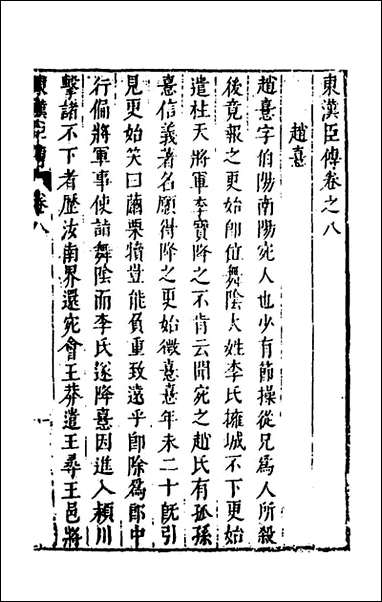 東漢臣傳卷之八
趙憙
趙憙字伯陽南陽宛人也少有節操從兄為人所殺
後竟報之更始卽位舞陰大姓李氏擁城不下更始
遣柱天將軍李寶降之不肯云聞宛之趙氏有孤孫
憙信義著名願得降之更始徵憙憙年未二十旣引
見更始笑曰繭栗犢豈能負重致遠乎卽除為郎中
行偏將軍事使詣舞陰而李氏遂降憙因進入潁川
擊諸不下者歷汝南界還宛會王莽遣王尋王邑將
東漢臣傳 卷八